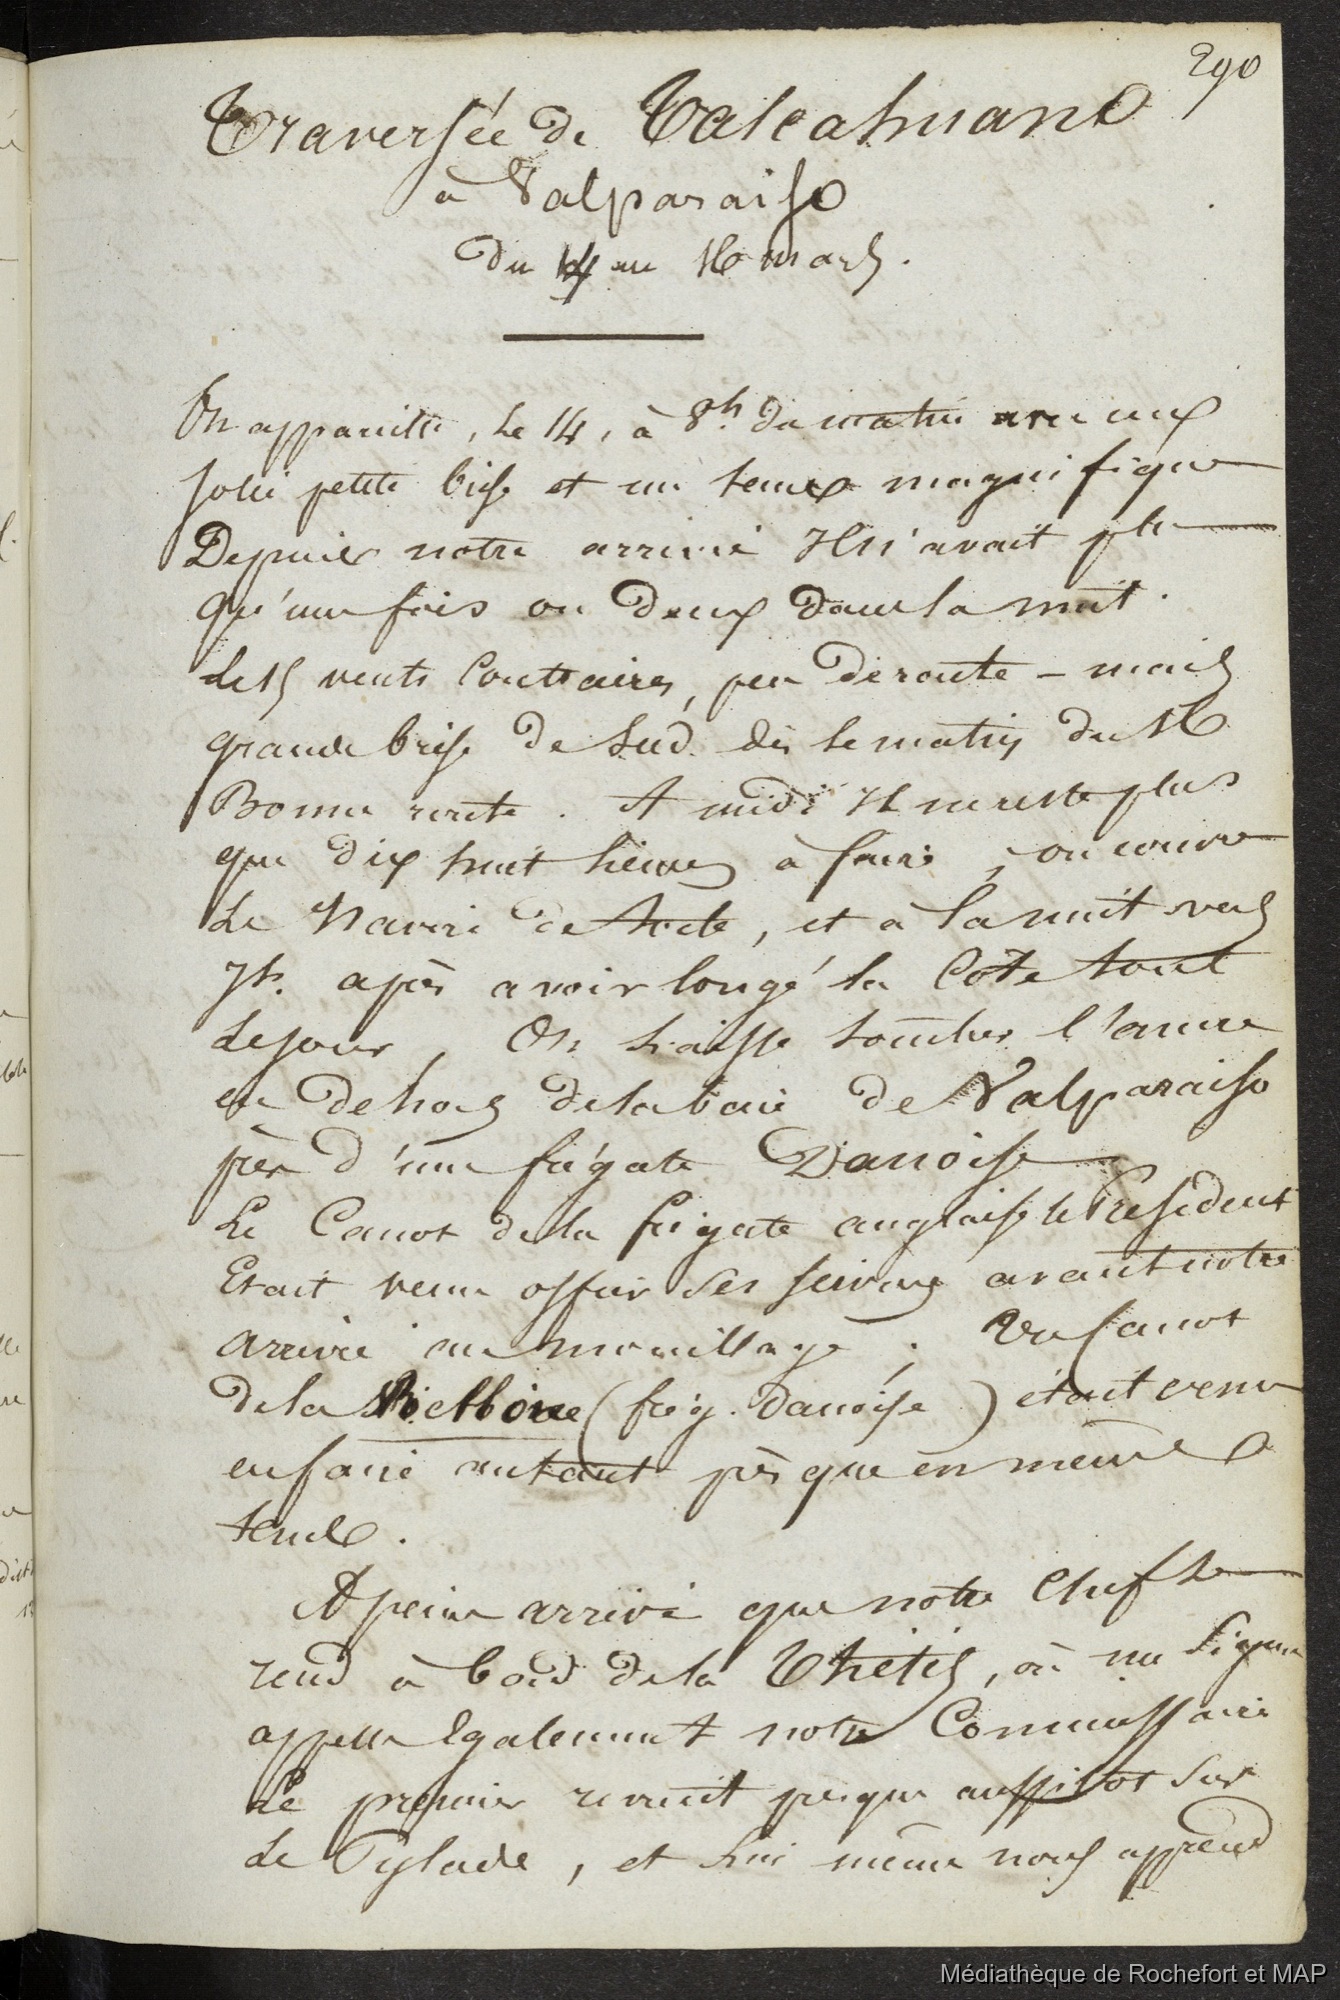 290
Traversée de Talcahuano
à Valparaiso
du 14 au 16 mars.
On appareille, le 14, à 8h. du matin avec une
jolie petite brise et un temps magnifique
Depuis notre arrivée Il n'avait plu
qu'une fois ou deux dans la nuit.
Le 15 vents contraires, peu de route - mais
grande brise de Sud dès le matin du 16
Bonne route. A midi Il ne reste plus
que dix huit lieues à faire, on couvre
Le Navire de toile, et à la nuit vers
7h. après avoir longé la Côte tout
le jour, On laisse tomber l'ancre
en dehors de la baie de Valparaiso
près d'une frégate Danoise
Le Canot de la frégate anglaise le President
Etait venu offrir ses services avant notre
arrivée au mouillage; Un canot
de la (frég. danoise) était venu
en faire autant presque en même
temps.
A peine arrivé que notre Chef se
rend à bord de la Thétis, où un signal
appelle Egalement notre Commissaire
Le premier revient presque aussitot sur
Le Pylade, et lui même nous apprend
Médiathèque de Rochefort et MAP